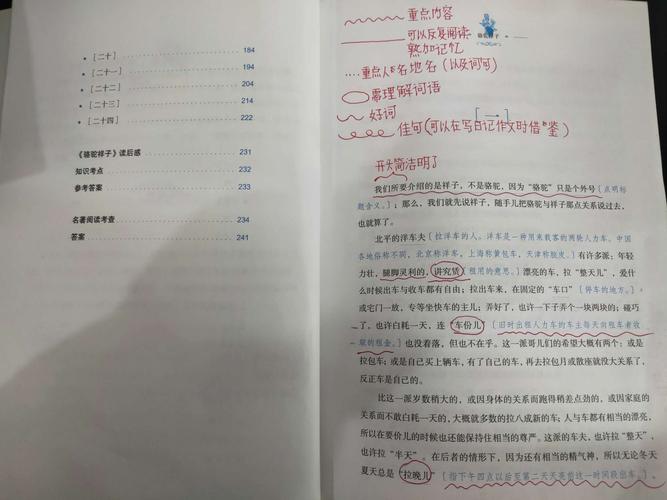 • [二十] 184
• [二十一] 194
• [二十二] 204
• [二十三] 214
• [二十四] 222
《骆驼祥子》读后感 231
知识考点 232
参考答案 233
名著阅读考查 234
答案 241
骆驼祥子
重点内容
可以反复阅读
熟加记忆
....重点人名地名(以及词句)
需理解词语
好词
佳句(可以在写日记作文时借鉴)
开头简洁明了
我们所要介绍的是祥子,不是骆驼,因为“骆驼”只是个外号[点明标
题含义。];那么,我们就先说祥子,随手儿把骆驼与祥子那点关系说过去,
也就算了。
北平的洋车夫[拉洋车的人。洋车是一种用来载客的两轮人力车。中国
各地俗称不同,北京称洋车,上海称黄包车,天津称胶皮。]有许多派:年轻
力壮,腿脚灵利的,讲究赁[租用的意思。]漂亮的车,拉“整天儿”,爱什
么时候出车与收车都有自由;拉出车来,在固定的“车口”[停车的地方。]
或宅门一放,专等坐快车的主儿;弄好了,也许一下子弄个一块两块的;碰巧
了,也许白耗一天,连“车份儿”[旧时出租人力车的车主每天向租车者收
取的租金。]也没着落,但也不在乎。这一派哥儿们的希望大概有两个:或是
拉包车;或是自己买上辆车,有了自己的车,再去拉包月或散座就没大关系了,
反正车是自己的。
比这一派岁数稍大的,或因身体的关系而跑得稍差点劲的,或因家庭的
关系而不敢白耗一天的,大概就多数的拉八成新的车;人与车都有相当的漂亮,
所以在要价儿的时候也还能保持住相当的尊严。这派的车夫,也许拉“整天”,
也许拉“半天”。在后者的情形下,因为还有相当的精气神,所以无论冬天
夏天总是“拉晚儿”[指下午四点以后至第二天天亮前这一时间段出车。]。